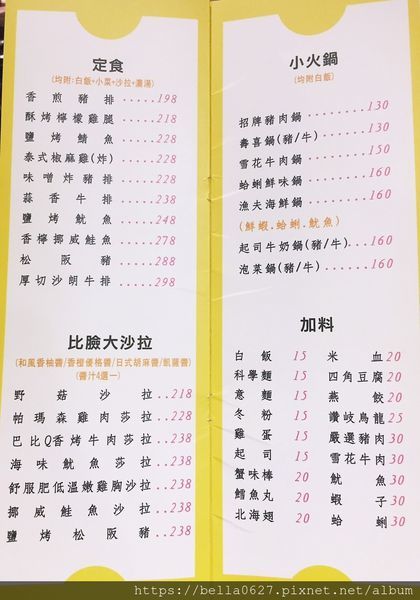 定食
(均附:白飯+小菜+沙拉+濃湯)
香煎豬排.....198
酥烤檸檬雞腿.....218
鹽烤鯖魚.....228
泰式椒麻雞(炸)...228
味噌炸豬排...228
蒜香牛排...238
鹽烤魷魚...248
香檸挪威鮭魚...278
松阪豬...288
厚切沙朗牛排...298
比臉大沙拉
(和風香柚醬/香橙優格醬/日式胡麻醬/凱薩醬)
(醬汁4選一)
野菇沙拉..218
帕瑪森雞肉莎拉..228
巴比Q香烤牛肉莎拉..238
海味魷魚莎拉..238
舒服肥低溫嫩雞胸沙拉..238
挪威鮭魚沙拉..238
鹽烤松阪豬..238
小火鍋
(均附白飯)
招牌豬肉鍋.........130
壽喜鍋(豬/牛).......130
雪花牛肉鍋.........150
蛤蜊鮮味鍋.........160
漁夫海鮮鍋.........160
(鮮蝦.蛤蜊.魷魚)
起司牛奶鍋(豬/牛)...160
泡菜鍋(豬/牛).......160
加料
白飯 15 米血 20
科學麵 15 四角豆腐 20
意麵 15 燕餃 20
冬粉 15 讚岐烏龍 25
雞蛋 15 嚴選豬肉 30
起司 15 雪花牛肉 30
蟹味棒 20 魷魚 30
鱈魚丸 20 蝦子 30
北海翅 20 蛤蜊 30
https://bella0627.pixnet.net/album